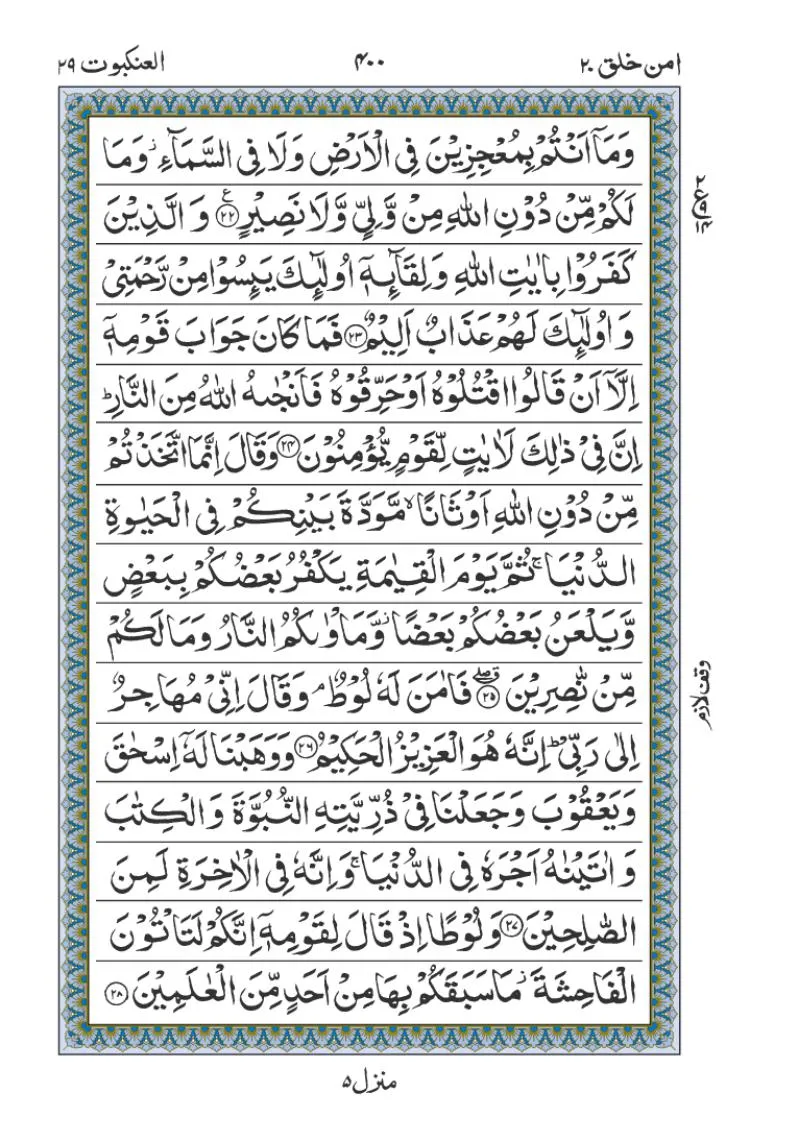 امن خلق ٢٠ ۴۰۰ العنکبوت ٢٩
وَمَاۤ اَنْتُمْ بِمُعْجِزِیْنَ فِی الْاَرْضِ وَلَا فِی السَّمَآءِ ؗ وَمَا
لَكُمْ مِّنْ دُوْنِ اللّٰهِ مِنْ وَّلِیٍّ وَّلَا نَصِیْرٍ ﴿۲۲﴾ ع وَ الَّذِیْنَ
كَفَرُوْا بِاٰیٰتِ اللّٰهِ وَلِقَآىِٕهٖۤ اُولٰٓىِٕكَ یَىِٕسُوْا مِنْ رَّحْمَتِیْ
وَ اُولٰٓىِٕكَ لَهُمْ عَذَابٌ اَلِیْمٌ ﴿۲۳﴾ فَمَا كَانَ جَوَابَ قَوْمِهٖۤ
اِلَّاۤ اَنْ قَالُوا اقْتُلُوْهُ اَوْ حَرِّقُوْهُ فَاَنْجٰىهُ اللّٰهُ مِنَ النَّارِ ؕ
اِنَّ فِیْ ذٰلِكَ لَاٰیٰتٍ لِّقَوْمٍ یُّؤْمِنُوْنَ ﴿۲۴﴾ وَقَالَ اِنَّمَا اتَّخَذْتُمْ
مِّنْ دُوْنِ اللّٰهِ اَوْثَانًا ۙ مَّوَدَّةَ بَیْنِكُمْ فِی الْحَیٰوةِ
الدُّنْیَا ۚ ثُمَّ یَوْمَ الْقِیٰمَةِ یَكْفُرُ بَعْضُكُمْ بِبَعْضٍ
وَّیَلْعَنُ بَعْضُكُمْ بَعْضًا ؗ وَّمَاْوٰىكُمُ النَّارُ وَمَا لَكُمْ
مِّنْ نّٰصِرِیْنَ ﴿۲۵﴾ فَاٰمَنَ لَهٗ لُوْطٌ ۘ وَقَالَ اِنِّیْ مُهَاجِرٌ
اِلٰی رَبِّیْ ؕ اِنَّهٗ هُوَ الْعَزِیْزُ الْحَكِیْمُ ﴿۲۶﴾ وَوَهَبْنَا لَهٗۤ اِسْحٰقَ
وَیَعْقُوْبَ وَجَعَلْنَا فِیْ ذُرِّیَّتِهِ النُّبُوَّةَ وَالْكِتٰبَ
وَ اٰتَیْنٰهُ اَجْرَهٗ فِی الدُّنْیَا ۚ وَاِنَّهٗ فِی الْاٰخِرَةِ لَمِنَ
الصّٰلِحِیْنَ ﴿۲۷﴾ وَلُوْطًا اِذْ قَالَ لِقَوْمِهٖۤ اِنَّكُمْ لَتَاْتُوْنَ
الْفَاحِشَةَ ؗ مَا سَبَقَكُمْ بِهَا مِنْ اَحَدٍ مِّنَ الْعٰلَمِیْنَ ﴿۲۸﴾
وقف لازم
منزل ۵